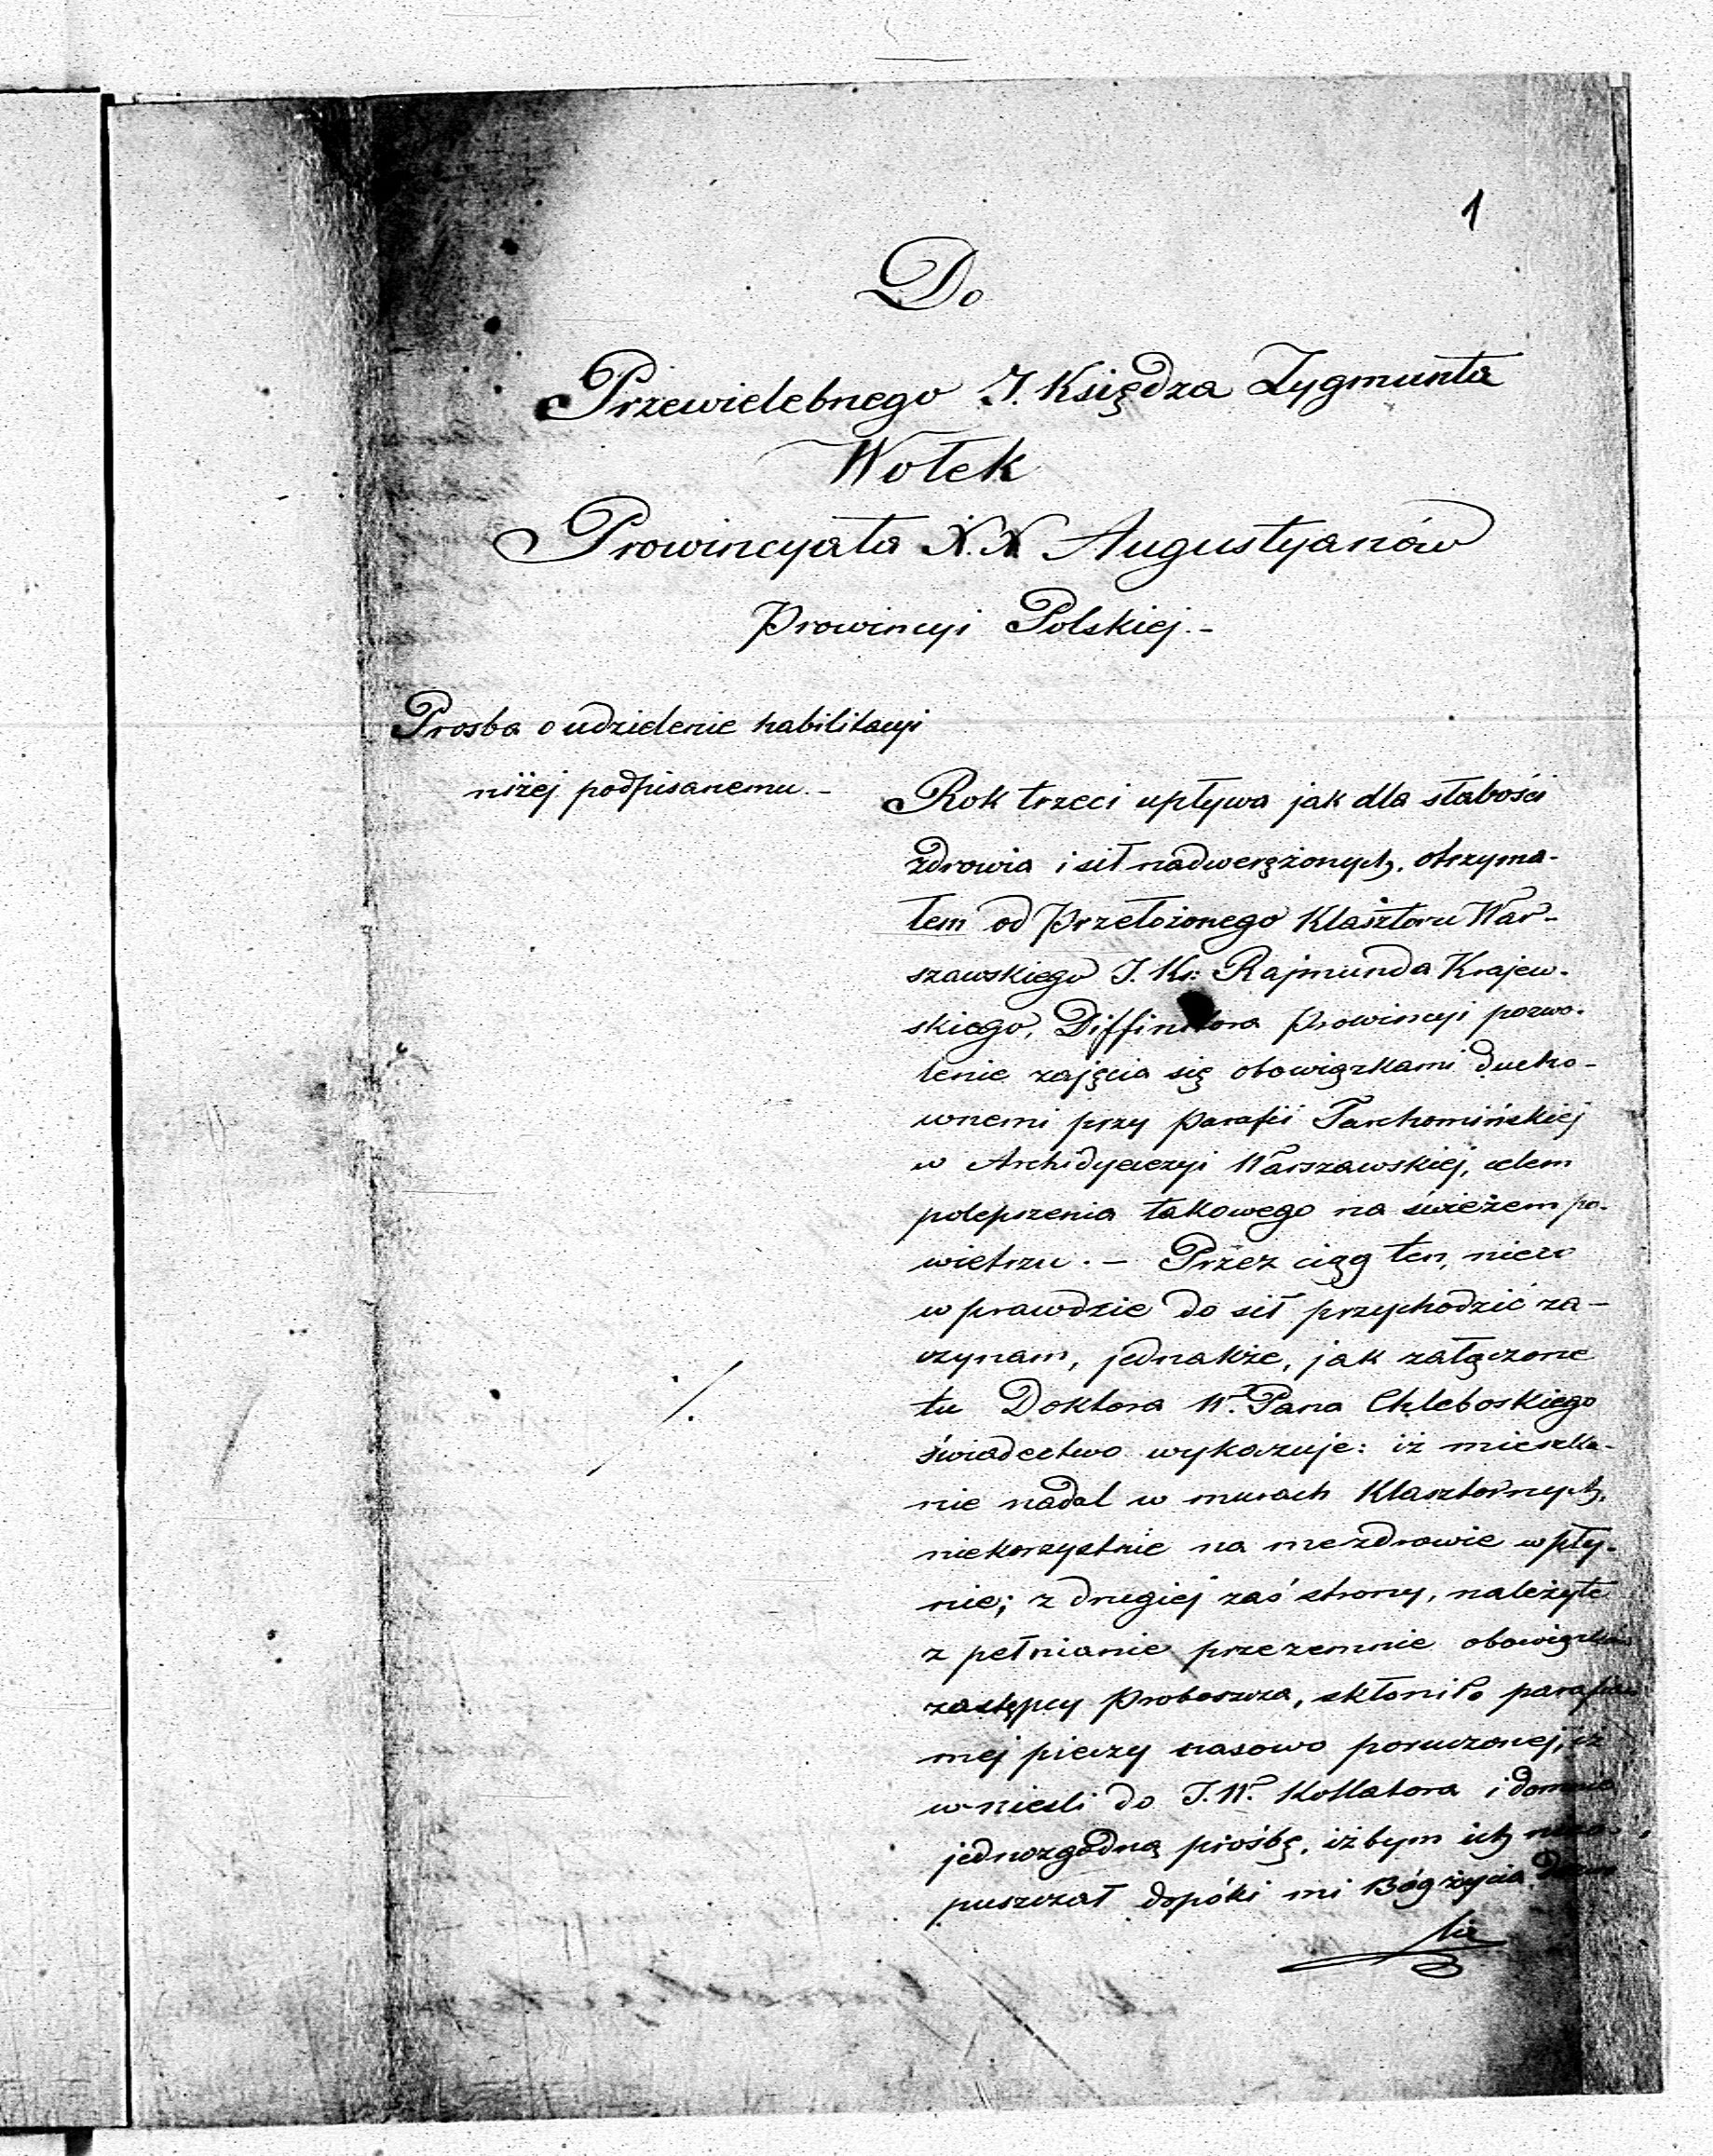 1
Do
Przewielebnego J. Księdza Zygmunta
Wołek
Prowincyała X.X Augustyanów
Prowincyi Polskiej.-
Prosba o udzielenie habilitacyi
niżej podpisanemu.-
Rok trzeci upływa jak dla słabości
zdrowia i sił nadweręzionych, otrzyma-
łem od Przełożonego Klasztoru War-
szawskiego J. Ks: Rajmunda Krajew-
skiego, Diffinitora Prowincyi pozwo-
lenie zajęcia się obowiązkami ducho-
wnemi przy Parafii Tarchomińskiej
w Archidyecezyi Warszawskiej, celem
polepszenia takowego na świeżem po-
wietrzu. - Przez ciąg ten, nieco
w prawdzie do sił przychodzić za-
czynam, jednakże, jak załączone
tu Doktora W. Pana Chleboskiego
świadectwo wykazuje: iż mieszka-
nie nadal w murach Klasztornych,
niekorzystnie na me zdrowie wpły-
nie; z drugiej zaś strony, należyte
z pełnianie przezemnie obowiązków
zastępcy Proboszcza, skłoniło parafian
mej pieczy czasowo poruczonej, iż
wnieśli do J.W. Kollatora i do mnie
jednozgodną prośbę, iżbym ich nieo-
puszczał dopóki mi Bóg życia